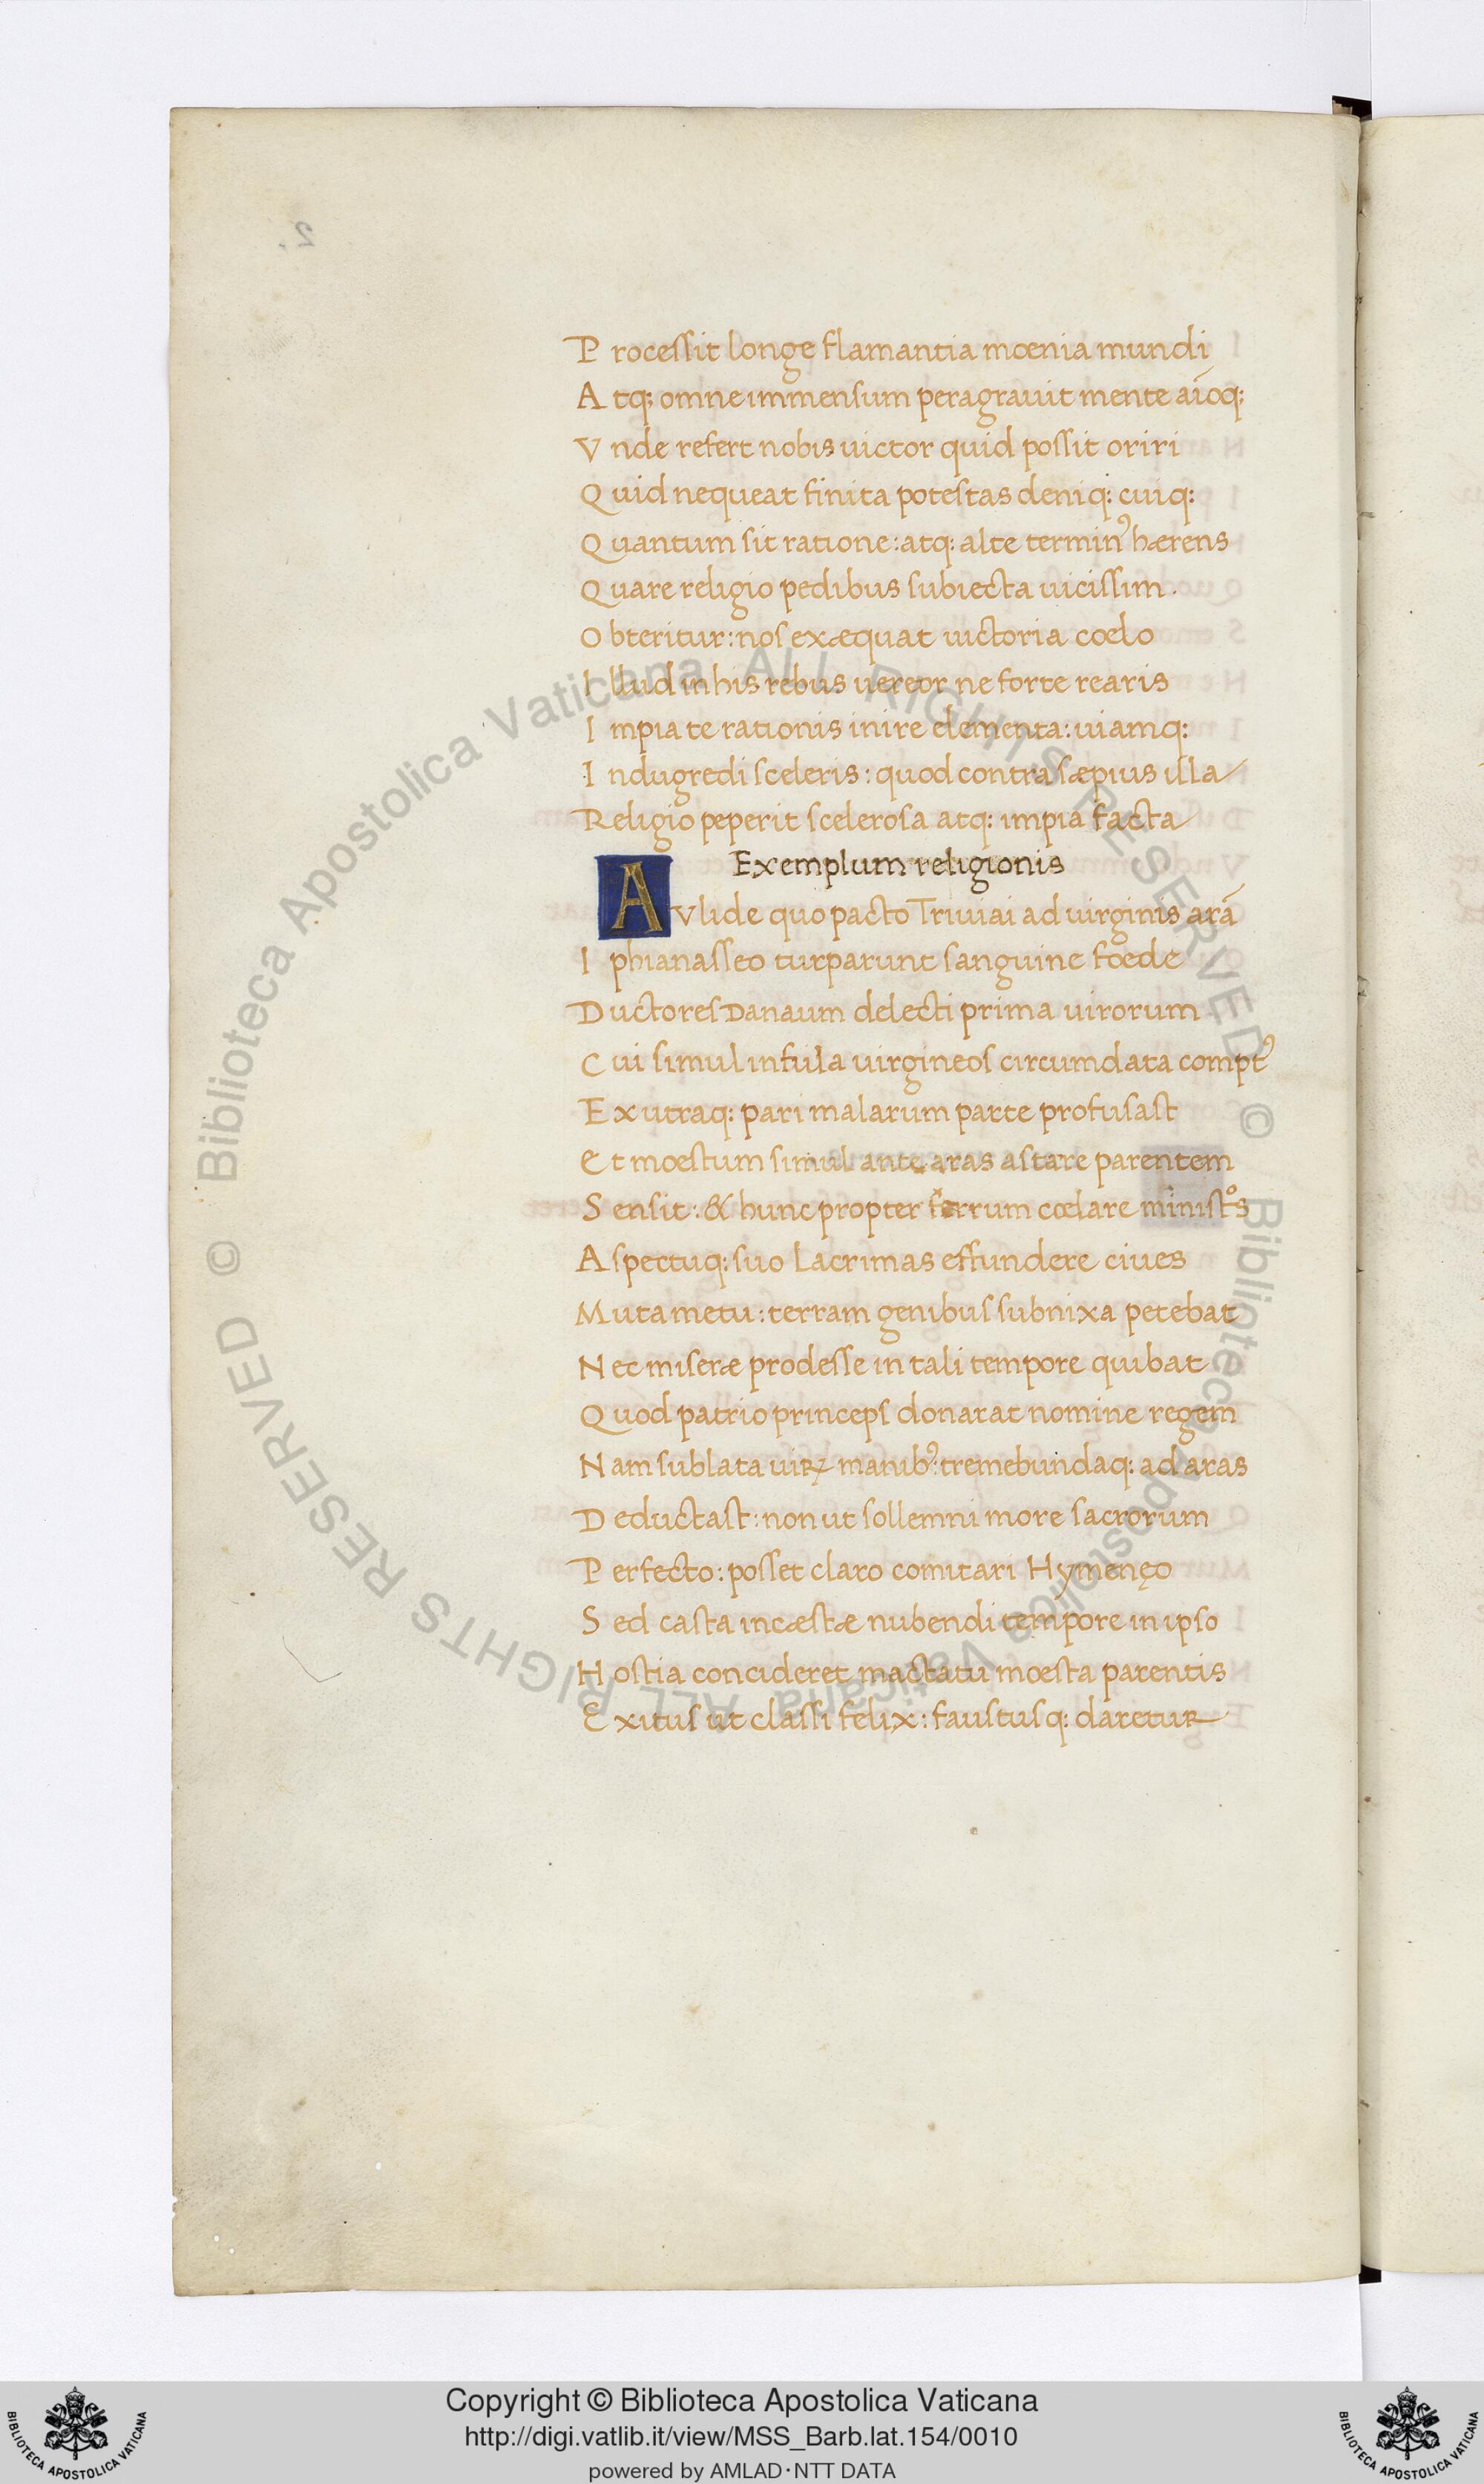 Processit longe flamantia mœnia mundi
Atq; omne immensum peragrauit mente aīoq;
Vnde refert nobis uictor quid possit oriri
Quid nequeat finita potestas deniq; cuiq;
Quantum sit ratione: atq; alte terminꝰ hærens
Quare religio pedibus subiecta uicissim.
Obteritur: nos exæquat uictoria cœlo
Illud in his rebus uereor ne forte rearis
Impia te rationis inire elementa: uiamq;
Indugredi sceleris: quod contra sæpius illa
Religio peperit scelerosa atq; impia facta
Exemplum religionis
AVlide quo pacto Triuiai ad uirginis arā
Iphianasseo turparunt sanguine foede
Ductores Danaum delecti prima uirorum
Cui simul infula uirgineos circumdata comptꝰ
Ex utraq; pari malarum parte profusast
Et moestum simul ante aras astare parentem
Sensit: & hunc propter ferrum cœlare minist°s
Aspectuq; suo lacrimas effundere ciues
Muta metu: terram genibus subnixa petebat
Nec miseræ prodesse in tali tempore quibat
Quod patrio princeps donarat nomine regem
Nam sublata uiꝝ manibꝰ: tremebundaq; ad aras
Deductast: non ut sollemni more sacrorum
Perfecto: posset claro comitari Hymenęo
Sed casta incæstæ nubendi tempore in ipso
Hostia concideret mactatu mœsta parentis
Exitus ut classi felix: faustusq; daretur
2.
© Biblioteca Apostolica Vaticana ALL RIGHTS RESERVED
© Biblioteca Apostolica Vaticana ALL RIGHTS RESERVED
Copyright © Biblioteca Apostolica Vaticana
http://digi.vatlib.it/view/MSS_Barb.lat.154/0010
powered by AMLAD·NTT DATA
BIBLIOTECA APOSTOLICA VATICANA
BIBLIOTECA APOSTOLICA VATICANA